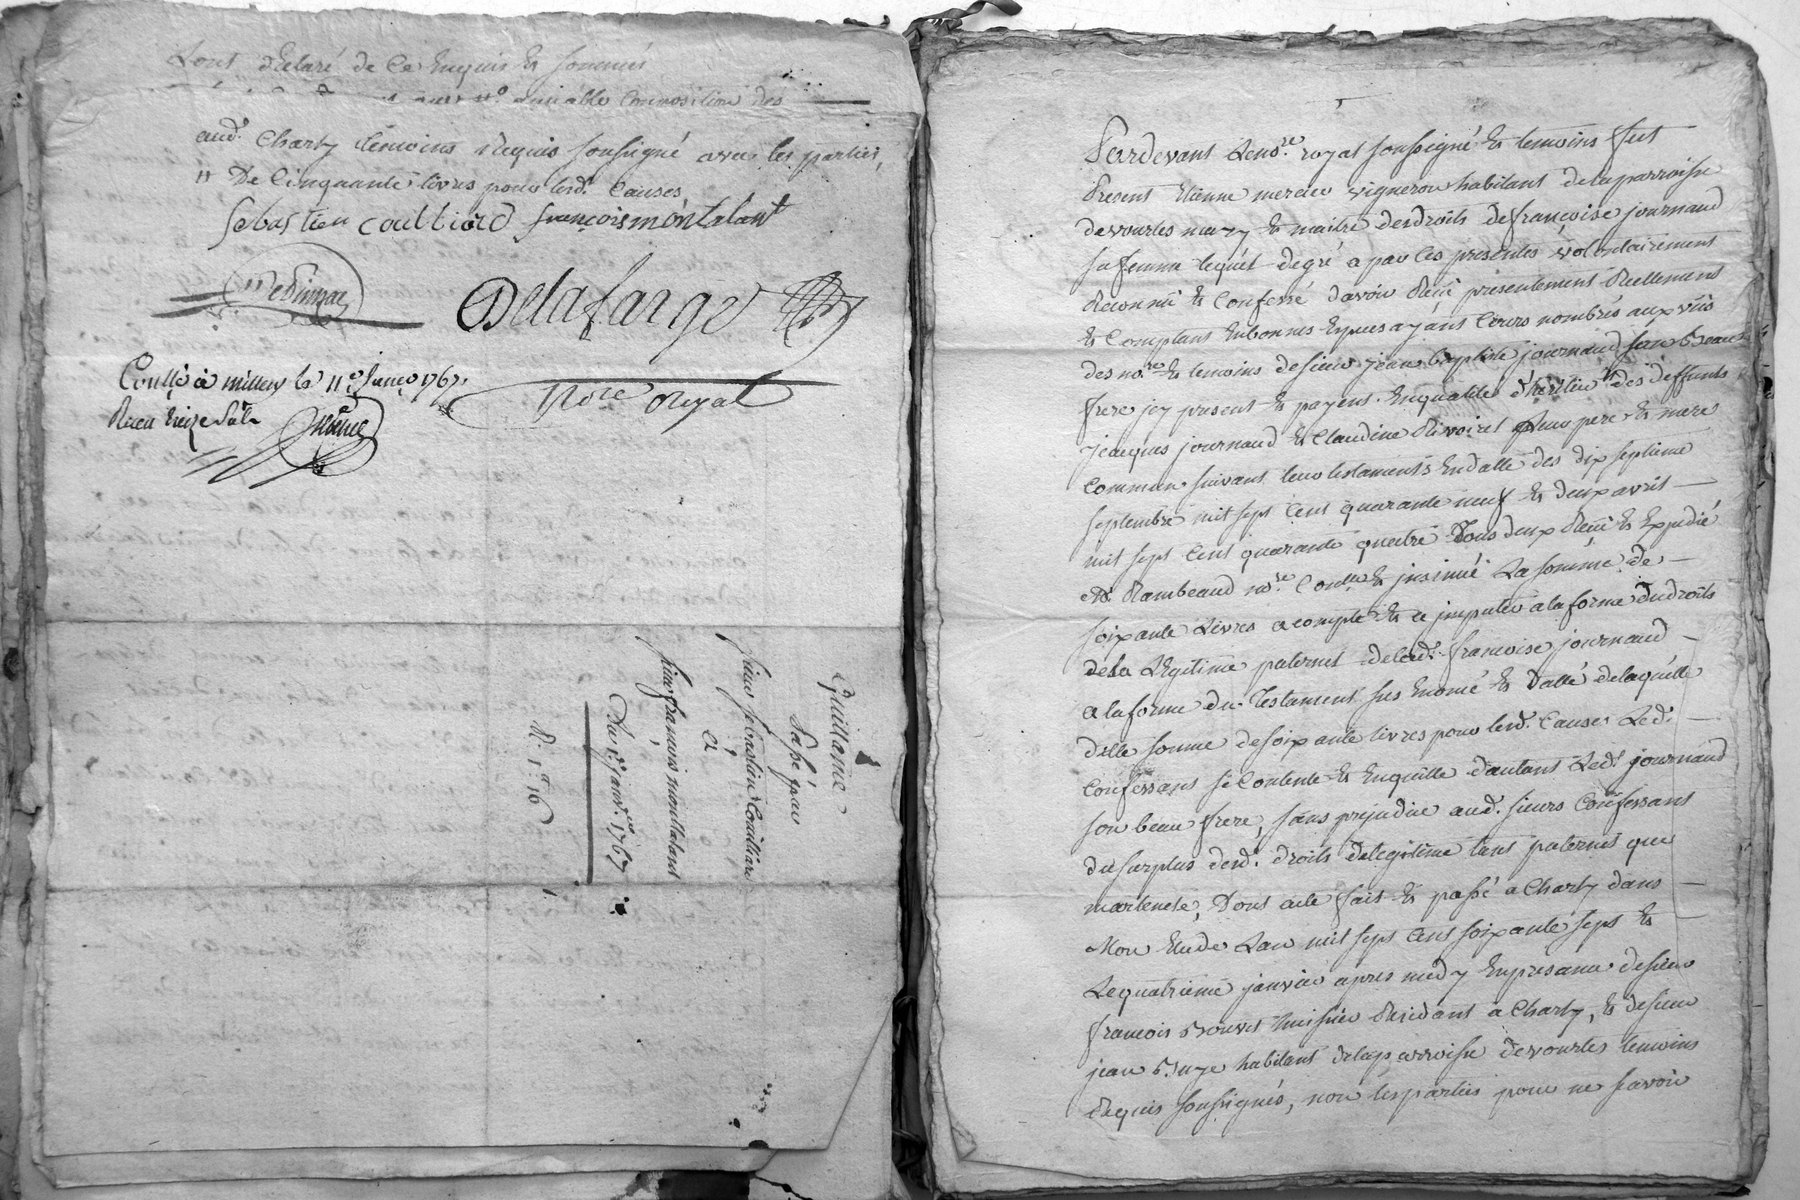 Lont declaré de ce Enquis & sommés
amiable Composition des
aud. Charly temoins Requis soussigné avec les parties,
De Cinquante livres pour lesd. Causes
Sebastien Coulliard françois montalant
Delafarge
Nore Royal
Conllé à millery le 11e Janer 1767.
Recu treize sols
Quittance
passé par
sieur sebastien Coulliard
à
sieur francois montalant
Du 1er janv. 1767
Pardevant Le nore. royal soussigné & temoins fut
Present Etienne mercier vigneron habitant de la parroisse
de vourles mary & maitre des droits de françoise journaud
sa femme lequel de gré a par les presentes volontairement
Reconnu & Confessé d'avoir Recu presentement Reellement
& Comptant En bonnes Especes ayant Cours nombrés aux vûs
des nores & temoins de sieur jean baptiste journaud son beau
frere jcy present & payent En qualité d'heritier des deffunts
jacques journaud & Claudine Rivoiret Leur pere & mere
Commun suivant leur testaments En datte des dix septieme
septembre mil sept Cent quarante neuf & deux avril
mil sept Cent quarante quatre Tous deux Recu & Expedié
Me Rambeaud nore. Conllé & jnsinué La somme de
soixante Livres acompte & a jmputer a la forme du droits
de la Legitime paternel de lad. francoise journaud
a la forme du Testament sus Enomé & Datté de laquelle
ditte somme de soixante livres pour lesd. Causes Led.
Confessant se Contente & En quitte d'autant Led. journaud
son beau frere, sans prejudice aud. sieur Confessant
du surplus desd. droits de legitime tant paternel que
maternelle, Dont acte fait & passé a Charly dans
Mon Etude L'an mil sept Cent soixante sept &
Le quatrieme janvier apres midy En presance de sieur
francois Bouvet huissier Residant a Charly, & de sieur
jean habitant de la parroisse de vourles temoins
Requis soussignés, non les parties pour ne savoir